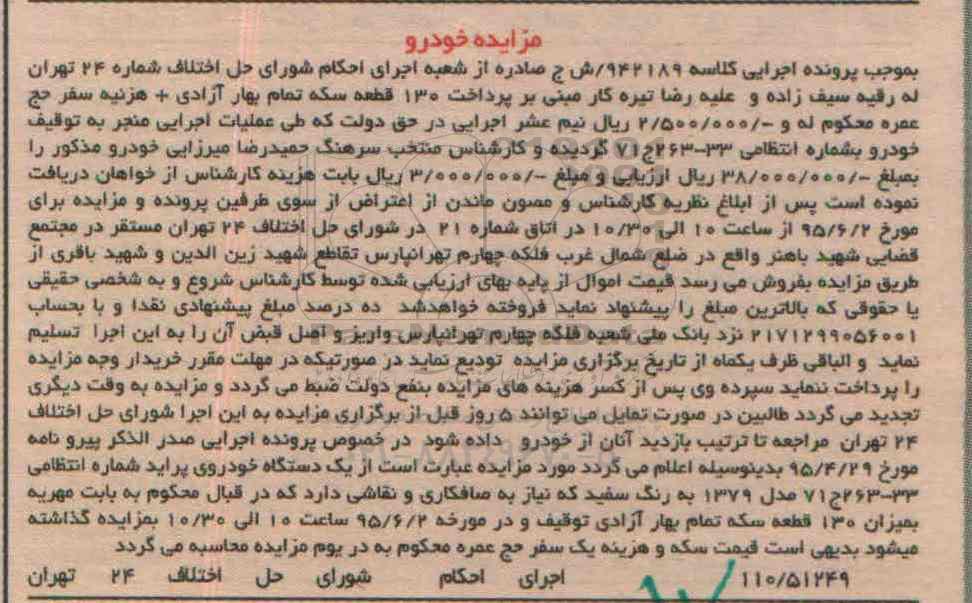 مزایده خودرو
بموجب پرونده اجرایی کلاسه ۹۴۲۱۸۹/ش ج صادره از شعبه اجرای احکام شورای حل اختلاف شماره ۲۴ تهران
له رقیه سیف زاده و علیه رضا تیره کار مبنی بر پرداخت ۱۳۰ قطعه سکه تمام بهار آزادی + هزینه سفر حج
عمره محکوم له و -/۲/۵۰۰/۰۰۰ ریال نیم عشر اجرایی در حق دولت که طی عملیات اجرایی منجر به توقیف
خودرو بشماره انتظامی ۳۳-۲۶۳ج۷۱ گردیده و کارشناس منتخب سرهنگ حمیدرضا میرزایی خودرو مذکور را
بمبلغ -/۳۸/۰۰۰/۰۰۰ ریال ارزیابی و مبلغ -/۳/۰۰۰/۰۰۰ ریال بابت هزینه کارشناس از خواهان دریافت
نموده است پس از ابلاغ نظریه کارشناس و مصون ماندن از اعتراض از سوی طرفین پرونده و مزایده برای
مورخ ۹۵/۶/۲ از ساعت ۱۰ الی ۱۰/۳۰ در اتاق شماره ۲۱ در شورای حل اختلاف ۲۴ تهران مستقر در مجتمع
قضایی شهید باهنر واقع در ضلع شمال غرب فلکه چهارم تهرانپارس تقاطع شهید زین الدین و شهید باقری از
طریق مزایده بفروش می رسد قیمت اموال از پایه بهای ارزیابی شده توسط کارشناس شروع و به شخصی حقیقی
یا حقوقی که بالاترین مبلغ را پیشنهاد نماید فروخته خواهدشد ده درصد مبلغ پیشنهادی نقدا و با بحساب
۲۱۷۱۲۹۹۰۵۶۰۰۱ نزد بانک ملی شعبه فلکه چهارم تهرانپارس واریز و اصل قبض آن را به این اجرا تسلیم
نماید و الباقی ظرف یکماه از تاریخ برگزاری مزایده تودیع نماید در صورتیکه در مهلت مقرر خریدار وجه مزایده
را پرداخت ننماید سپرده وی پس از کسر هزینه های مزایده بنفع دولت ضبط می گردد و مزایده به وقت دیگری
تجدید می گردد طالبین در صورت تمایل می توانند ۵ روز قبل از برگزاری مزایده به این اجرا شورای حل اختلاف
۲۴ تهران مراجعه تا ترتیب بازدید آنان از خودرو داده شود در خصوص پرونده اجرایی صدر الذکر پیرو نامه
مورخ ۹۵/۴/۲۹ بدینوسیله اعلام می گردد مورد مزایده عبارت است از یک دستگاه خودروی پراید شماره انتظامی
۳۳-۲۶۳ج۷۱ مدل ۱۳۷۹ به رنگ سفید که نیاز به صافکاری و نقاشی دارد که در قبال محکوم به بابت مهریه
بمیزان ۱۳۰ قطعه سکه تمام بهار آزادی توقیف و در مورخه ۹۵/۶/۲ ساعت ۱۰ الی ۱۰/۳۰ بمزایده گذاشته
میشود بدیهی است قیمت سکه و هزینه یک سفر حج عمره محکوم به در یوم مزایده محاسبه می گردد
۱۱۰/۵۱۲۴۹ اجرای احکام شورای حل اختلاف ۲۴ تهران